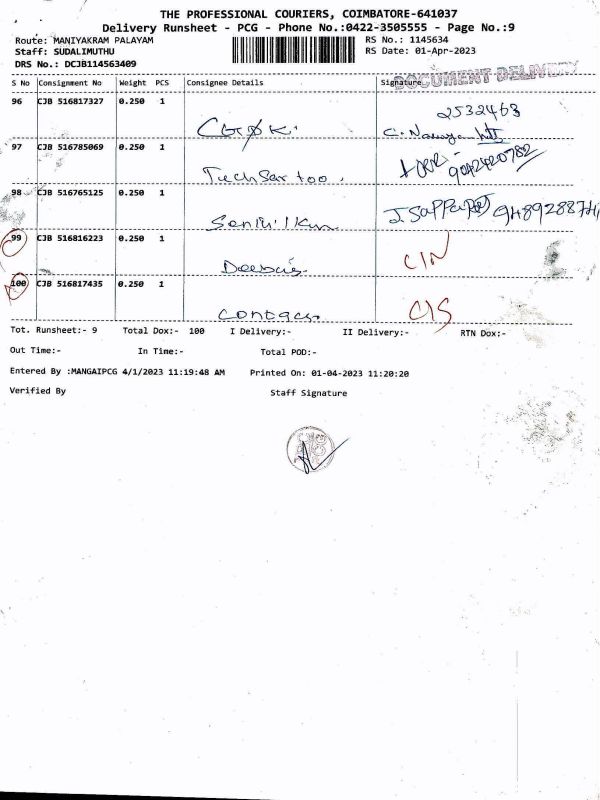 THE PROFESSIONAL COURIERS, COIMBATORE-641037
Delivery Runsheet - PCG - Phone No.:0422-3505555 - Page No.:9
Route: MANIYAKRAM PALAYAM RS No.: 1145634
Staff: SUDALIMUTHU RS Date: 01-Apr-2023
DRS No.: DCJB114563409
DOCUMENT DELIVERY
S No Consignment No Weight PCS Consignee Details Signature
96 CJB 516817327 0.250 1
2532463
97 CJB 516785069 0.250 1
9042420782
98 CJB 516765125 0.250 1
99 CJB 516816223 0.250 1
CIN
100 CJB 516817435 0.250 1
CIS
Tot. Runsheet:- 9 Total Dox:- 100 I Delivery:- II Delivery:- RTN Dox:-
Out Time:- In Time:- Total POD:-
Entered By :MANGAIPCG 4/1/2023 11:19:48 AM Printed On: 01-04-2023 11:20:20
Verified By Staff Signature